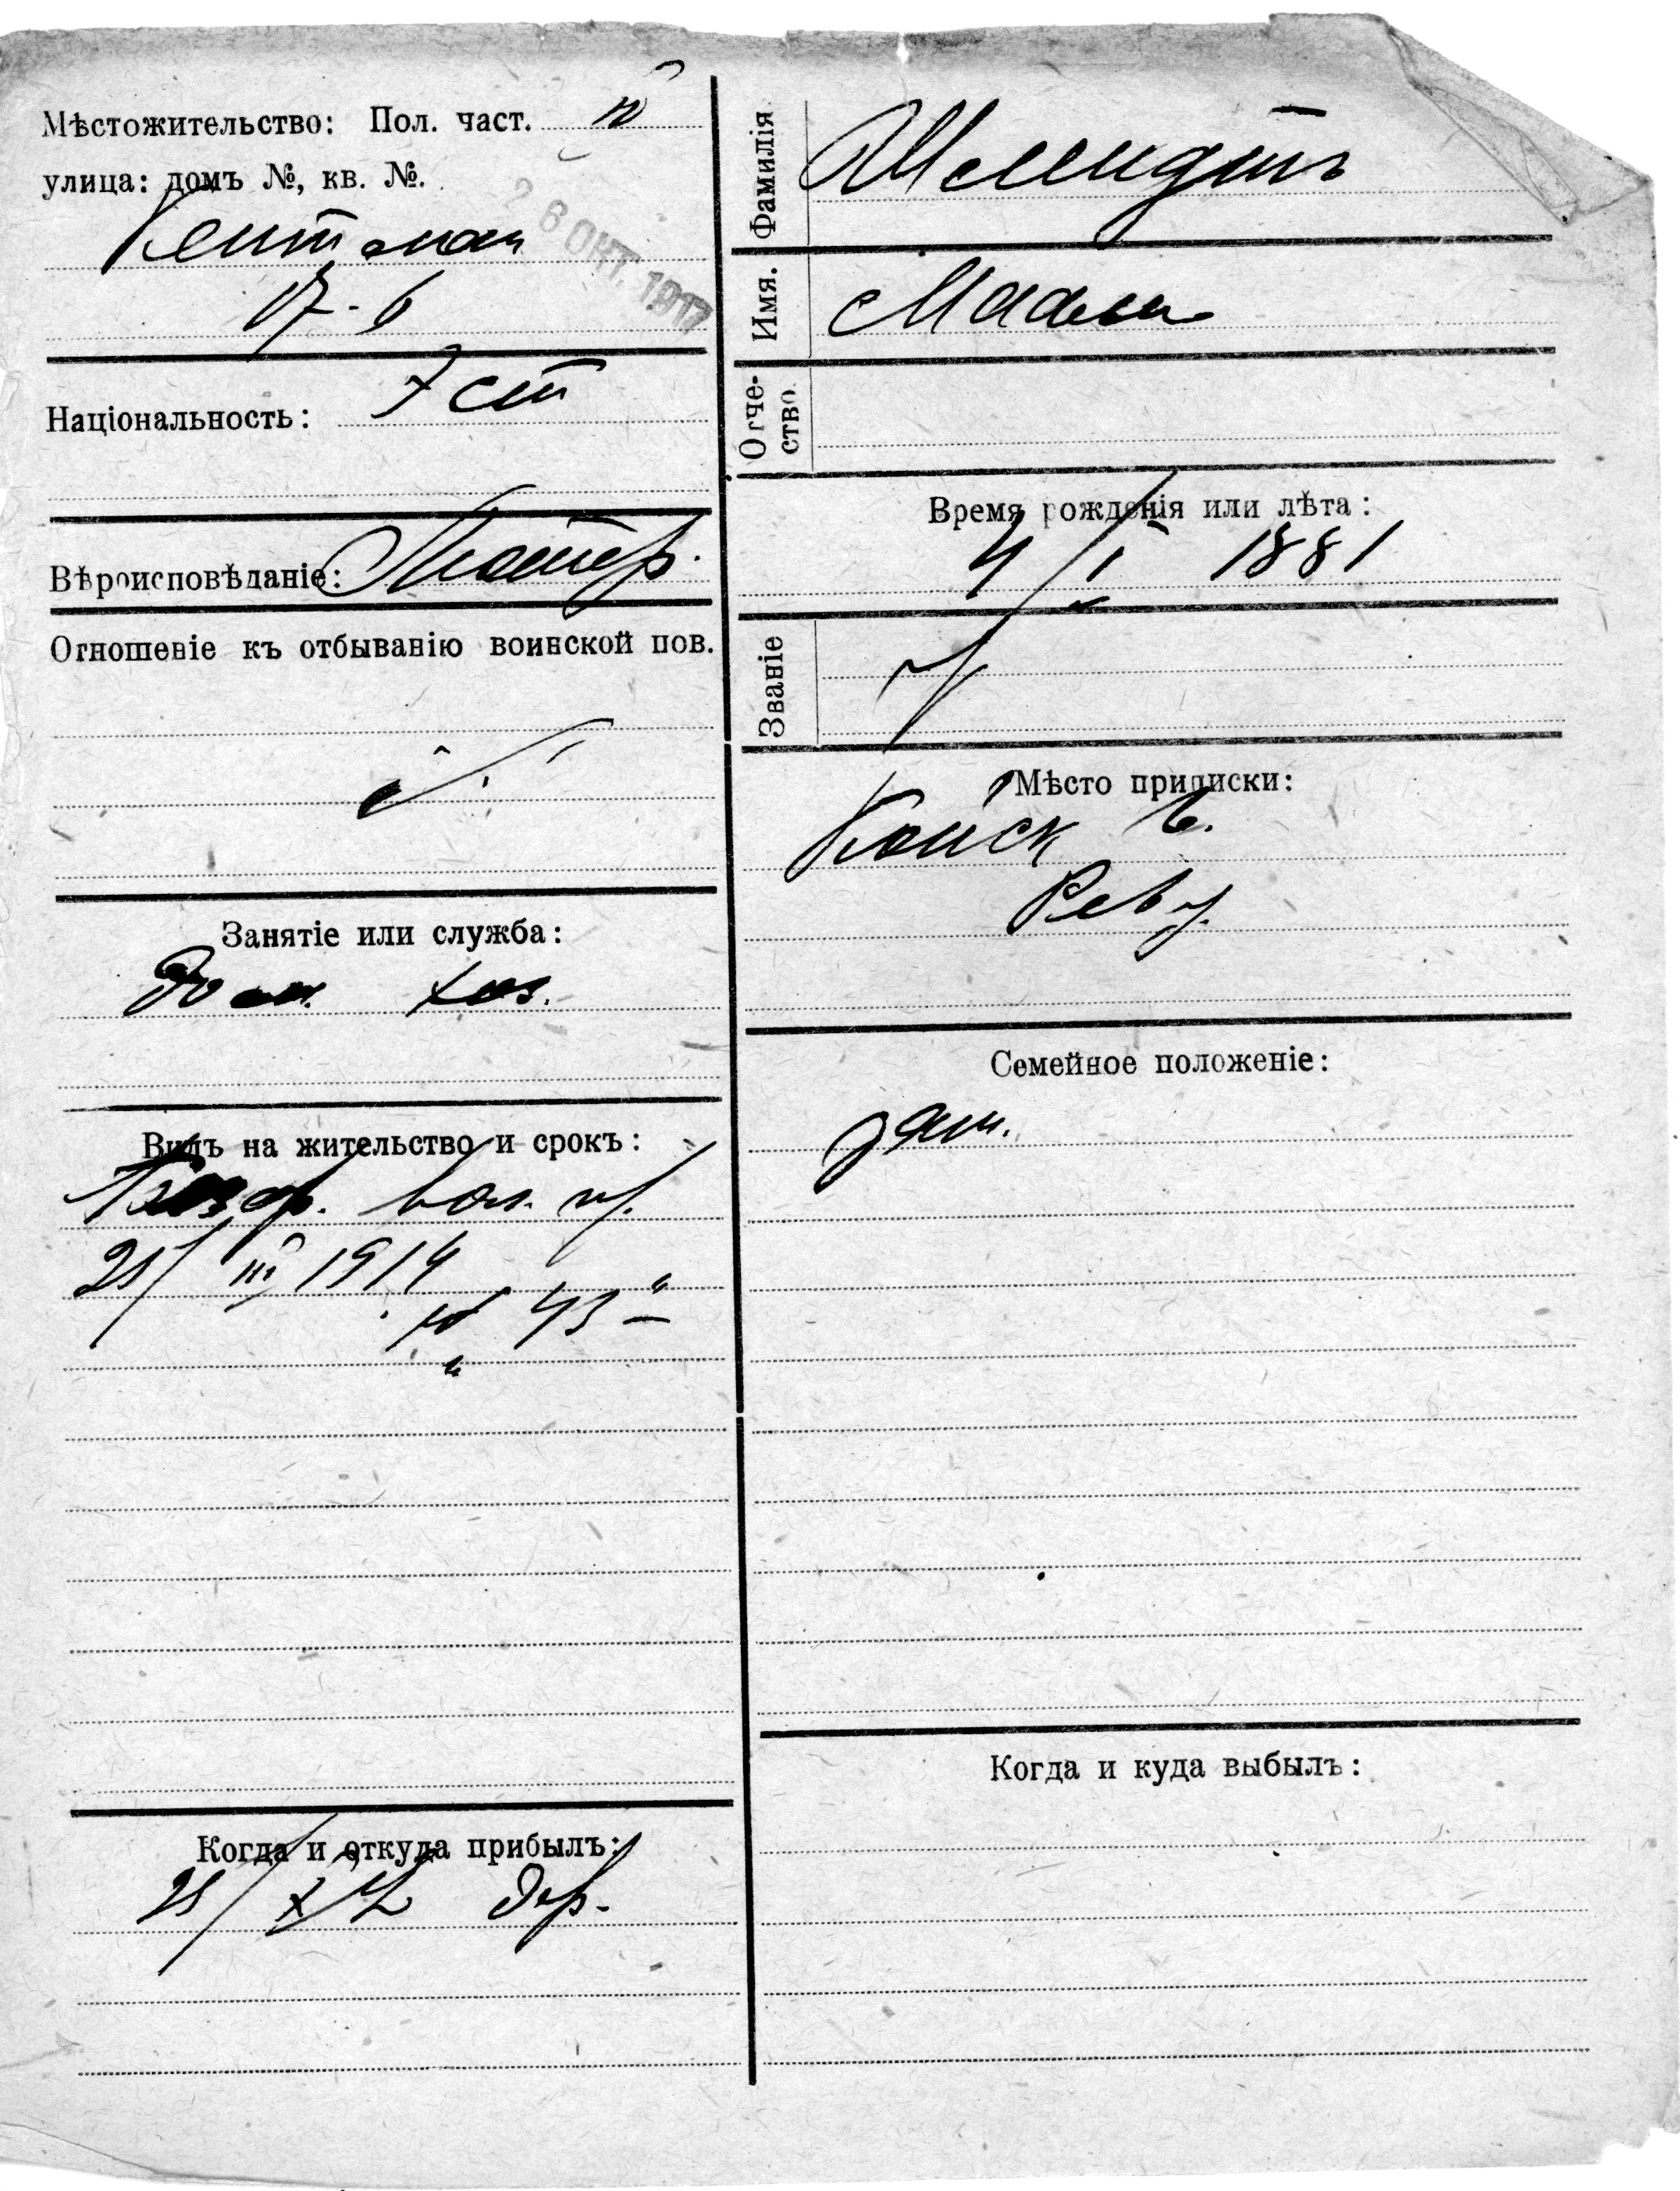 Мѣстожительство: Пол. част.
улица: домъ №, кв. №.
26 ОКТ. 1917
17-6
Національность: Эст
Вѣроисповѣданіе: Лютер.
Отношеніе къ отбыванію воинской пов.
Занятіе или служба:
дом. хоз.
Видъ на жительство и срокъ:
Безср. вол. пр.
21/III 1914
№ 43
Когда и откуда прибылъ:
Фамилія
Шмидтъ
Имя.
Отче-
ство.
Время рожденія или лѣта:
4/I 1881
Званіе
кр
Мѣсто приписки:
Койск в.
Рев у.
Семейное положеніе:
зам.
Когда и куда выбылъ: